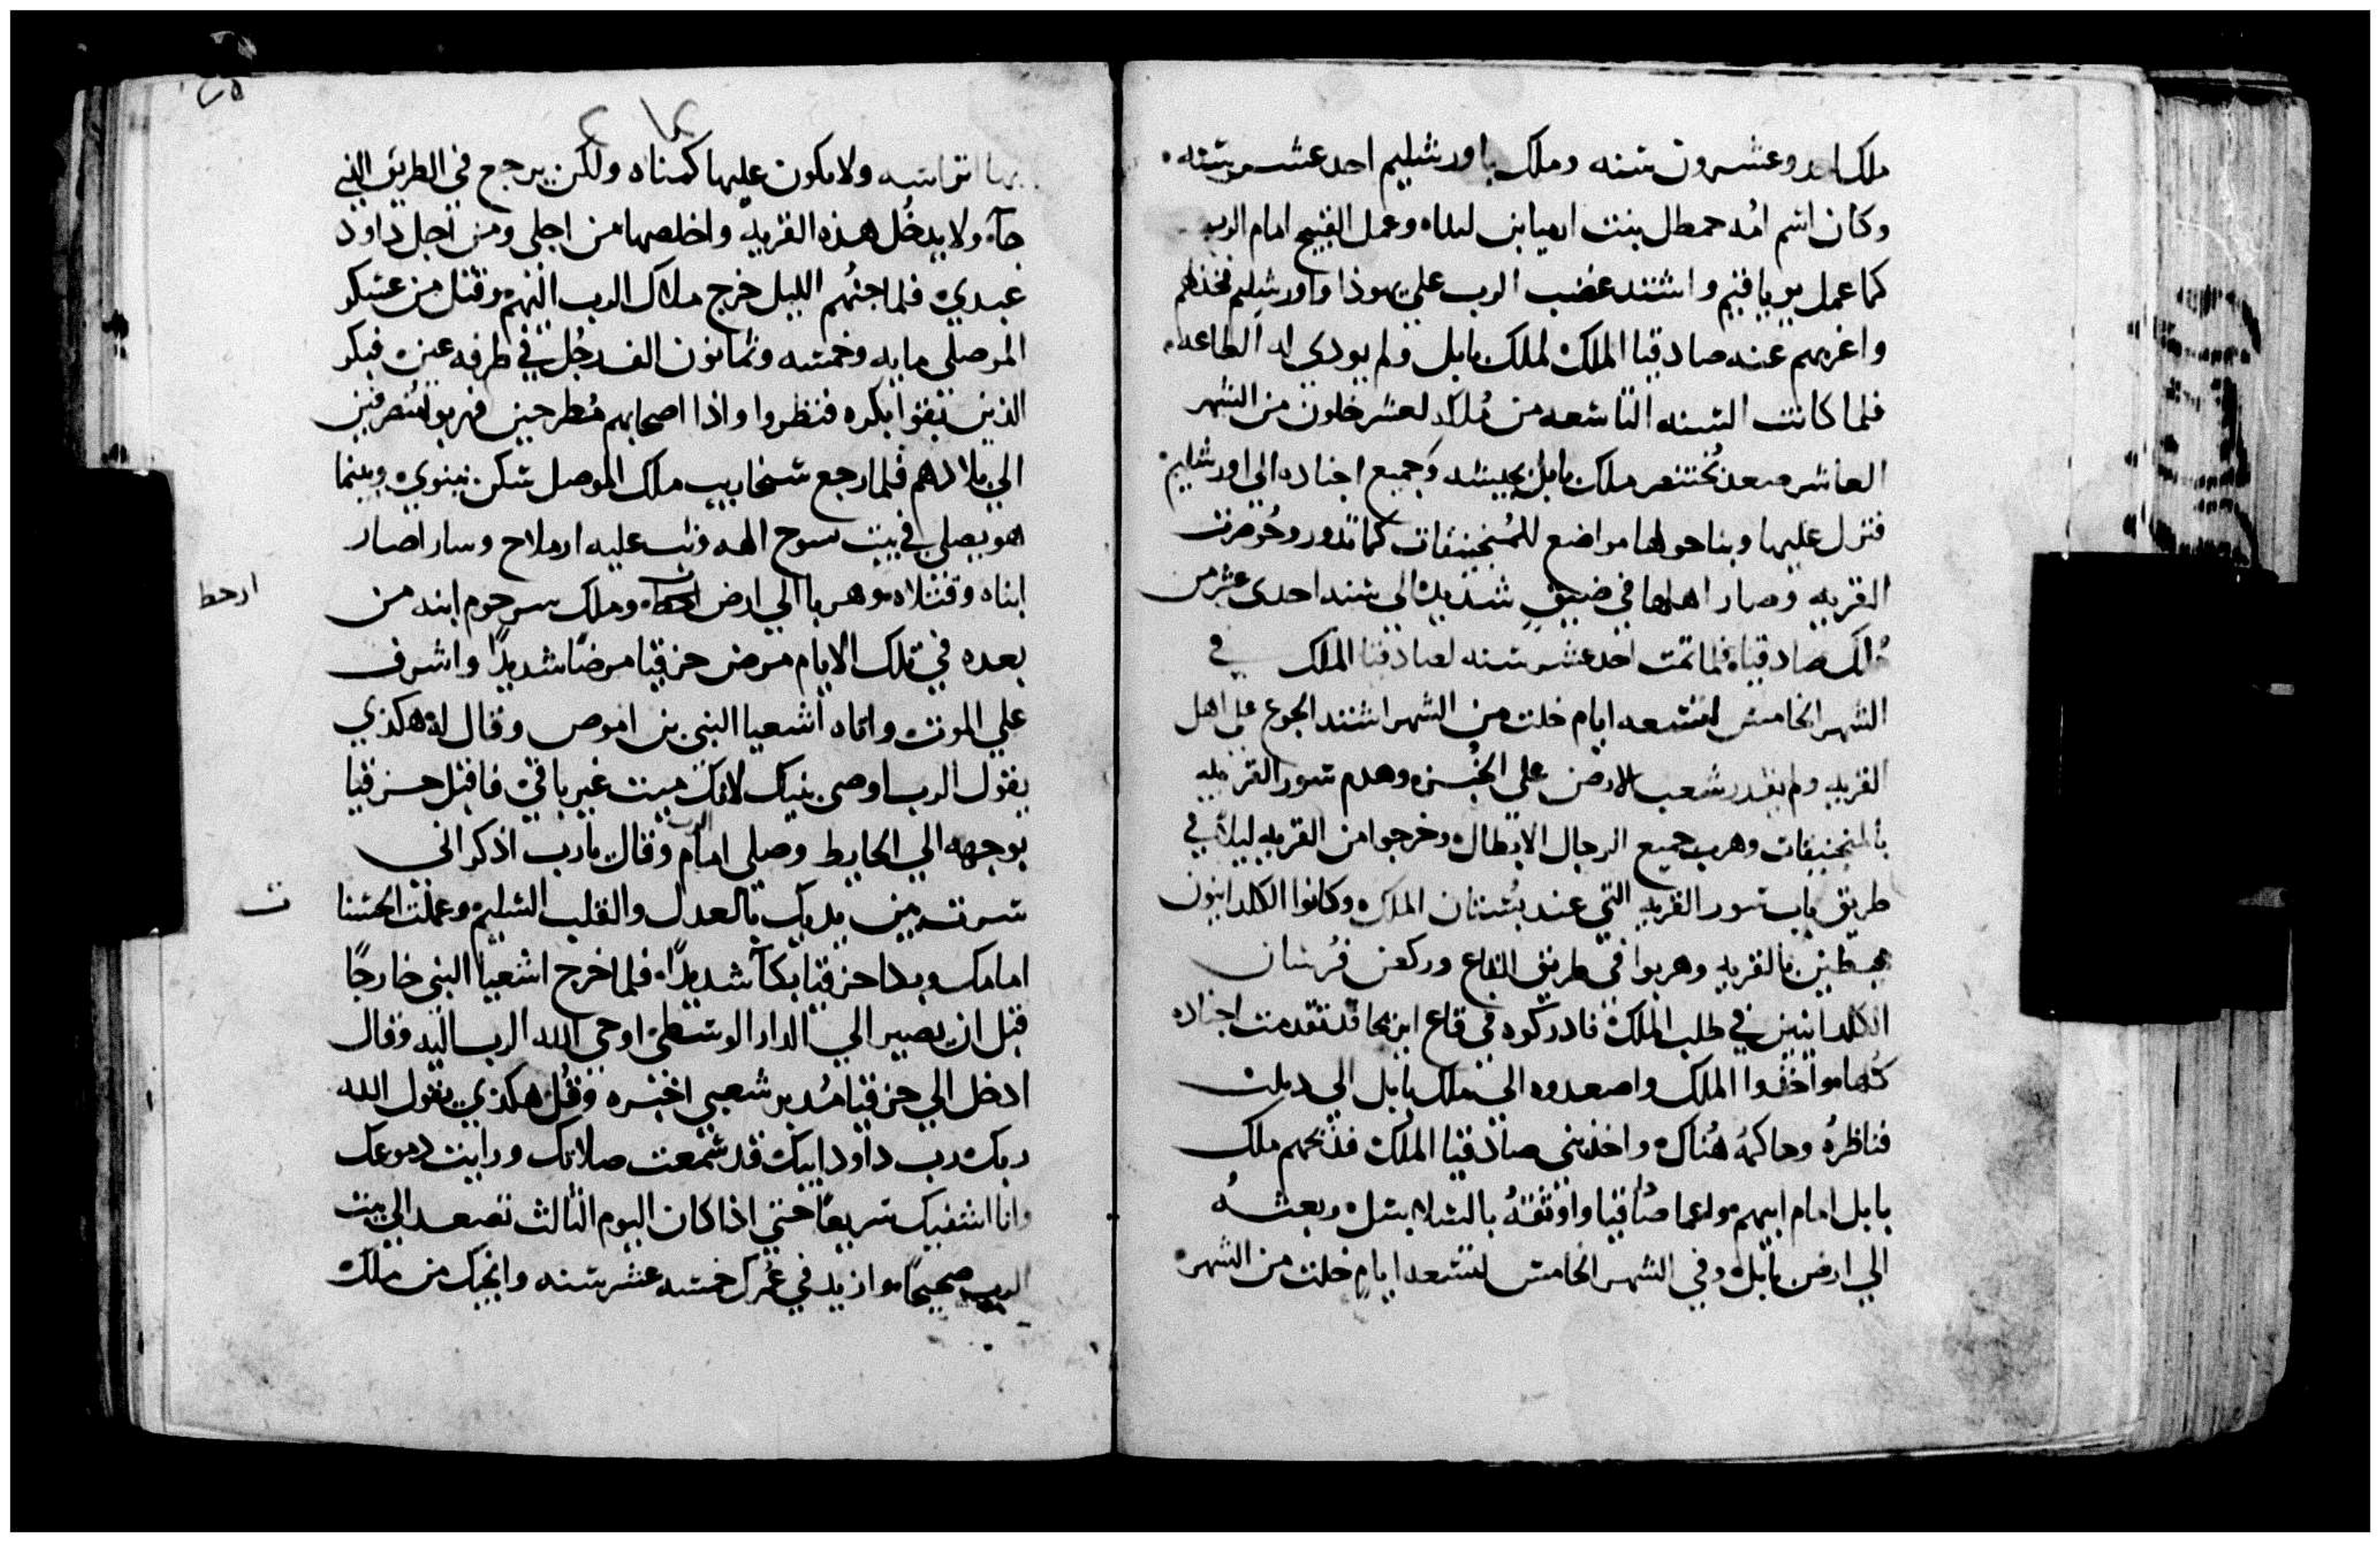 ملك احد وعشرون سنه وملك باورشليم احد عشر سنه
وكان اسم امه حمطل بنت ارميا بن لبناه وعمل القبيح امام الرب
كما عمل يوياقيم واشتد غضب الرب علي يهوذا واورشليم فخذلهم
واغربهم عنه صادقيا الملك لملك بابل ولم يودي له الطاعه
فلما كانت السنه التاسعه من مُلكه لعشر خلون من الشهر
العاشر صعد بُختنصر ملك بابل بجيشه وجميع اجناده الي اورشليم
فنزل عليها وبنا حولها مواضع للمُنجنيقات كما تدور وحُوصرت
القريه وصار اهلها في ضيق شديد الي سنه احدى عشر من
مُلك صادقيا فلما تمت احد عشر سنه لصادقيا الملك في
الشهر الخامس لتسعه ايام خلت من الشهر اشتد الجوع علي اهل
القريه ولم يقدر شعب الارض علي الخُبز وهدم سور القريه
بالمنجنيقات وهرب جميع الرجال الابطال وخرجوا من القريه ليلا في
طريق باب سور القريه التي عند بُستان الملك وكانوا الكلدانيون
محيطين بالقريه وهربوا في طريق القاع وركض فُرسان
الكلدانيين في طلب الملك فادركوه في قاع ايريحا قد تقدمت اجناده
كُلها واخذوا الملك واصعدوه الي ملك بابل الي دبلت
فناظرهُ وحاكمهُ هُناك واخذ بني صادقيا الملك فذبحهم ملك
بابل امام ابيهم واعما صادقيا واوثقهُ بالسلاسل وبعثهُ
الي ارض بابل وفي الشهر الخامس لتسعه ايام خلت من الشهر
بها اتراسه ولا يكون عليها كمناه ولكن يرجع في الطريق الذي
جآه ولا يدخُل هذه القريه واخلصها من اجلي ومن اجل داود
عبدي فلما جنهُم الليل خرج ملاك الرب اليهم وقتل من عسكر
الموصلي مايه وخمسه وثمانون الف رجُل في طرفه عين فبكر
الذين بقوا بكره فنظروا واذا اصحابهم مُطرحين فهربوا مُنصرفين
الي بلادهم فلما رجع سنحاريب ملك الموصل سكن نينوي وبينما
هو يصلي في بيت سوح الهه وثب عليه ارملاح وساراصار
ابناه وقتلاه وهربا الي ارض وملك سرحوم ابنه من
ارحط
بعده في تلك الايام مرض حزقيا مرضًا شديدًا واشرف
علي الموت واتاه اشعيا النبي بن اموص وقال لهُ هكذي
يقول الرب اوصي بنيك لانك ميت غير باقي فاقبل حزقيا
بوجهه الي الحايط وصلي امام الرب وقال يارب اذكر اني
سرت بين يديك بالعدل والقلب السليم وعملت الحسنا
ت
امامك وبكا حزقيا بكآ شديدًا فلما خرج اشعيا النبي خارجًا
قبل ان يصير الي الدار الوسطي اوحي الله الرب اليه وقال
ادخل الي حزقيا مُدبر شعبي اخبره وقُل هكذي يقول الله
ربك رب داود ابيك قد سمعت صلاتك ورايت دموعك
وانا اشفيك سريعًا حتي اذا كان اليوم الثالث تصعد الي بيت
الرب صحيحًا وازيد في عُمرك خمسه عشر سنه وانجيك من ملك